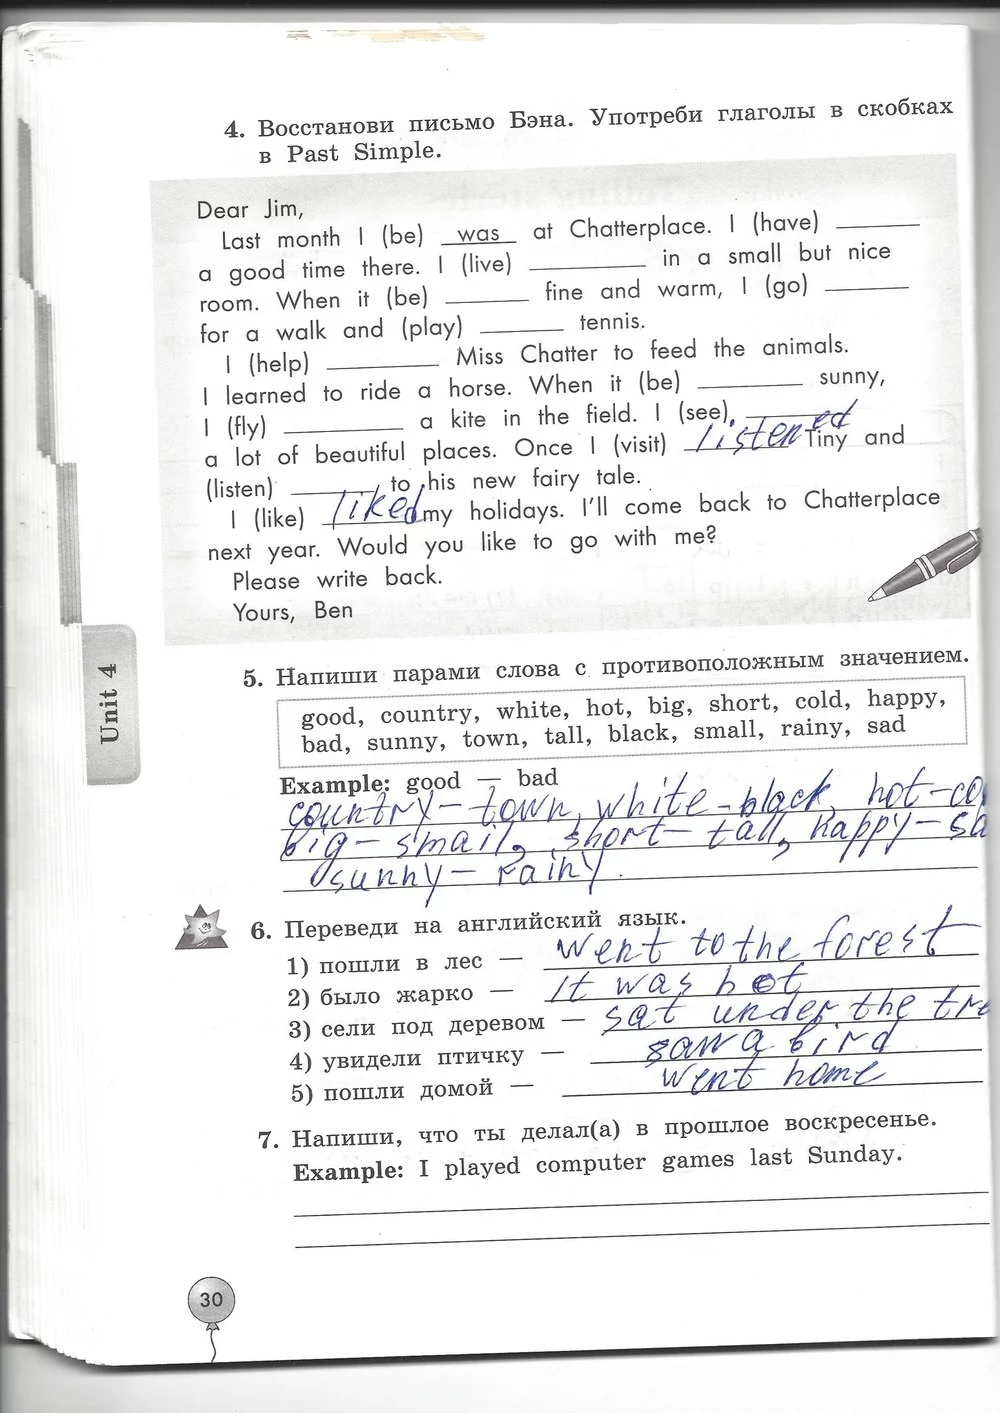 4. Восстанови письмо Бэна. Употреби глаголы в скобках
в Past Simple.
Dear Jim,
Last month I (be) was at Chatterplace. I (have) ______
a good time there. I (live) ______ in a small but nice
room. When it (be) ______ fine and warm, I (go) ______
for a walk and (play) ______ tennis.
I (help) ______ Miss Chatter to feed the animals.
I learned to ride a horse. When it (be) ______ sunny,
I (fly) ______ a kite in the field. I (see) ______
a lot of beautiful places. Once I (visit) listened Tiny and
(listen) ______ to his new fairy tale.
I (like) liked my holidays. I'll come back to Chatterplace
next year. Would you like to go with me?
Please write back.
Yours, Ben
Unit 4
5. Напиши парами слова с противоположным значением.
good, country, white, hot, big, short, cold, happy,
bad, sunny, town, tall, black, small, rainy, sad
Example: good — bad
country – town, white – black, hot – co
big – small, short – tall, happy – sa
sunny – rainy.
6. Переведи на английский язык.
1) пошли в лес — went to the forest
2) было жарко — it was hot
3) сели под деревом — sat under the tre
4) увидели птичку — saw a bird
5) пошли домой — went home
7. Напиши, что ты делал(а) в прошлое воскресенье.
Example: I played computer games last Sunday.
30